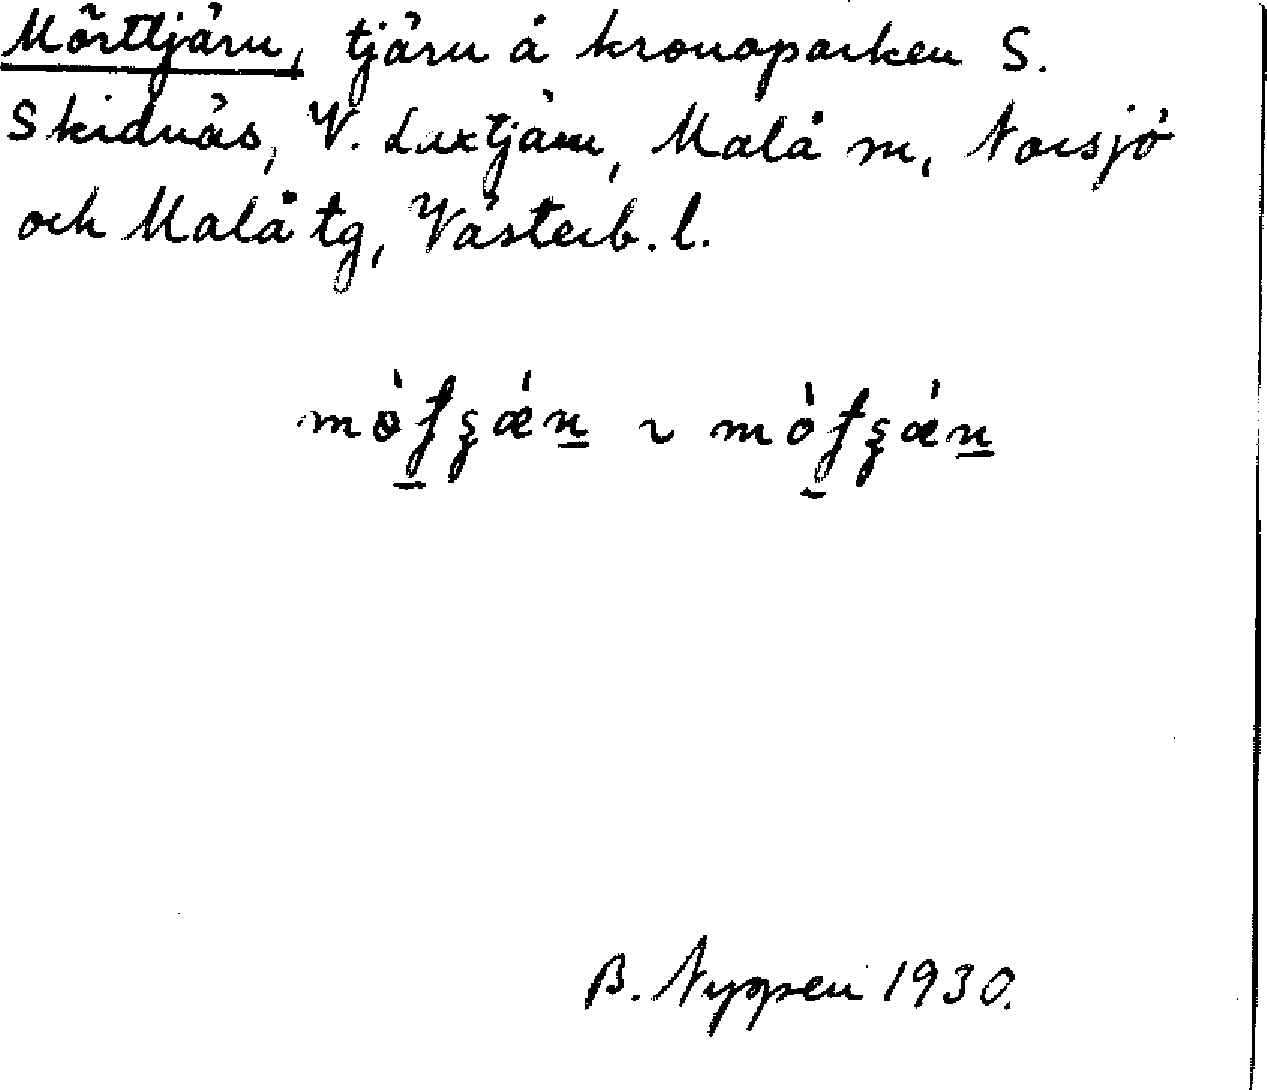 Mörttjärn, tjärn å kronoparken S.
Skidnäs, V. Luxtjärn, Malå m, Norsjö
och Malå tg, Västerb. l.
B. Nyqpen 1930.